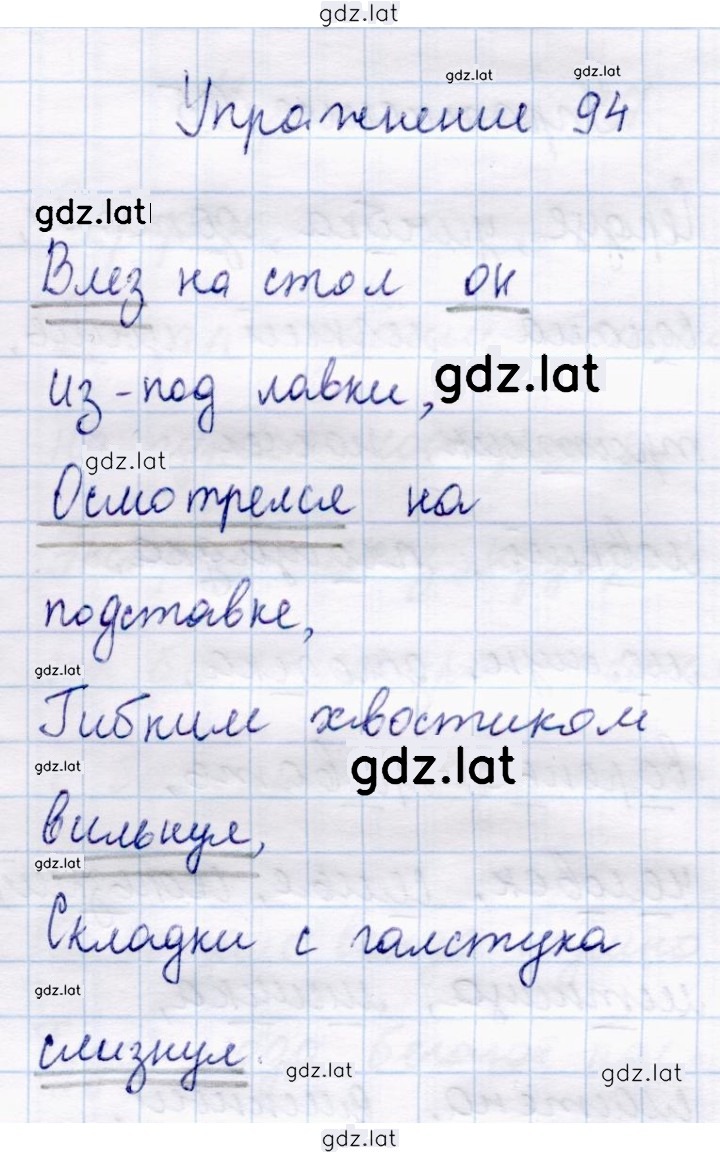 gdz.lat
gdz.lat gdz.lat
Упражнение 94
gdz.lat
Влез на стол он
из-под лавки,
gdz.lat
gdz.lat
Осмотрелся на
подставке,
gdz.lat
Гибким хвостиком
gdz.lat
gdz.lat
вильнул,
gdz.lat
Складки с галстука
gdz.lat
слизнул.
gdz.lat gdz.lat
gdz.lat